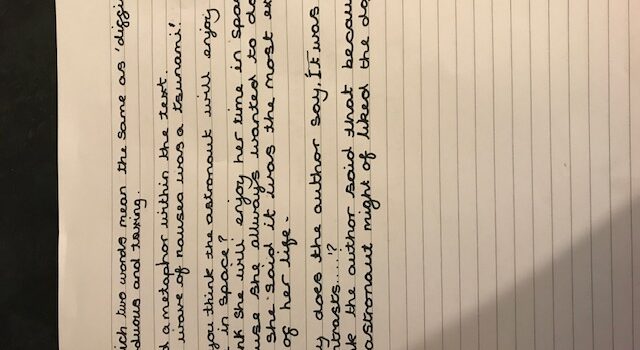 ich two words mean the same as 'diffi
duous and taxing.
d a metaphor within the text.
wave of nausea was a tsunami!
you think the astronaut will enjoy
in space?
nk she will enjoy her time in spa
use she allways wanted to do
she said it was the most e
of her life.
y does the author say, It was
ntrasts....'?
k the author said that becau
astronaut might of liked the do